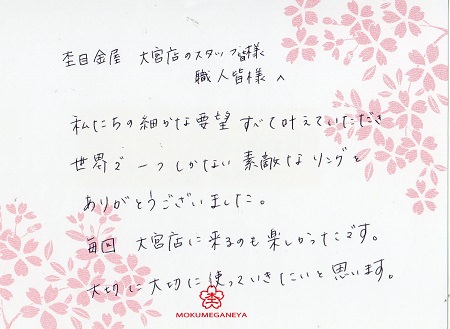 杢目金屋 大宮店のスタッフ皆様
職人皆様へ
私たちの細かな要望 すべて叶えていただき
世界で一つしかない 素敵なリングを
ありがとうございました。
毎回 大宮店に来るのも楽しかったです。
大切に大切に使っていきたいと思います。
MOKUMEGANEYA